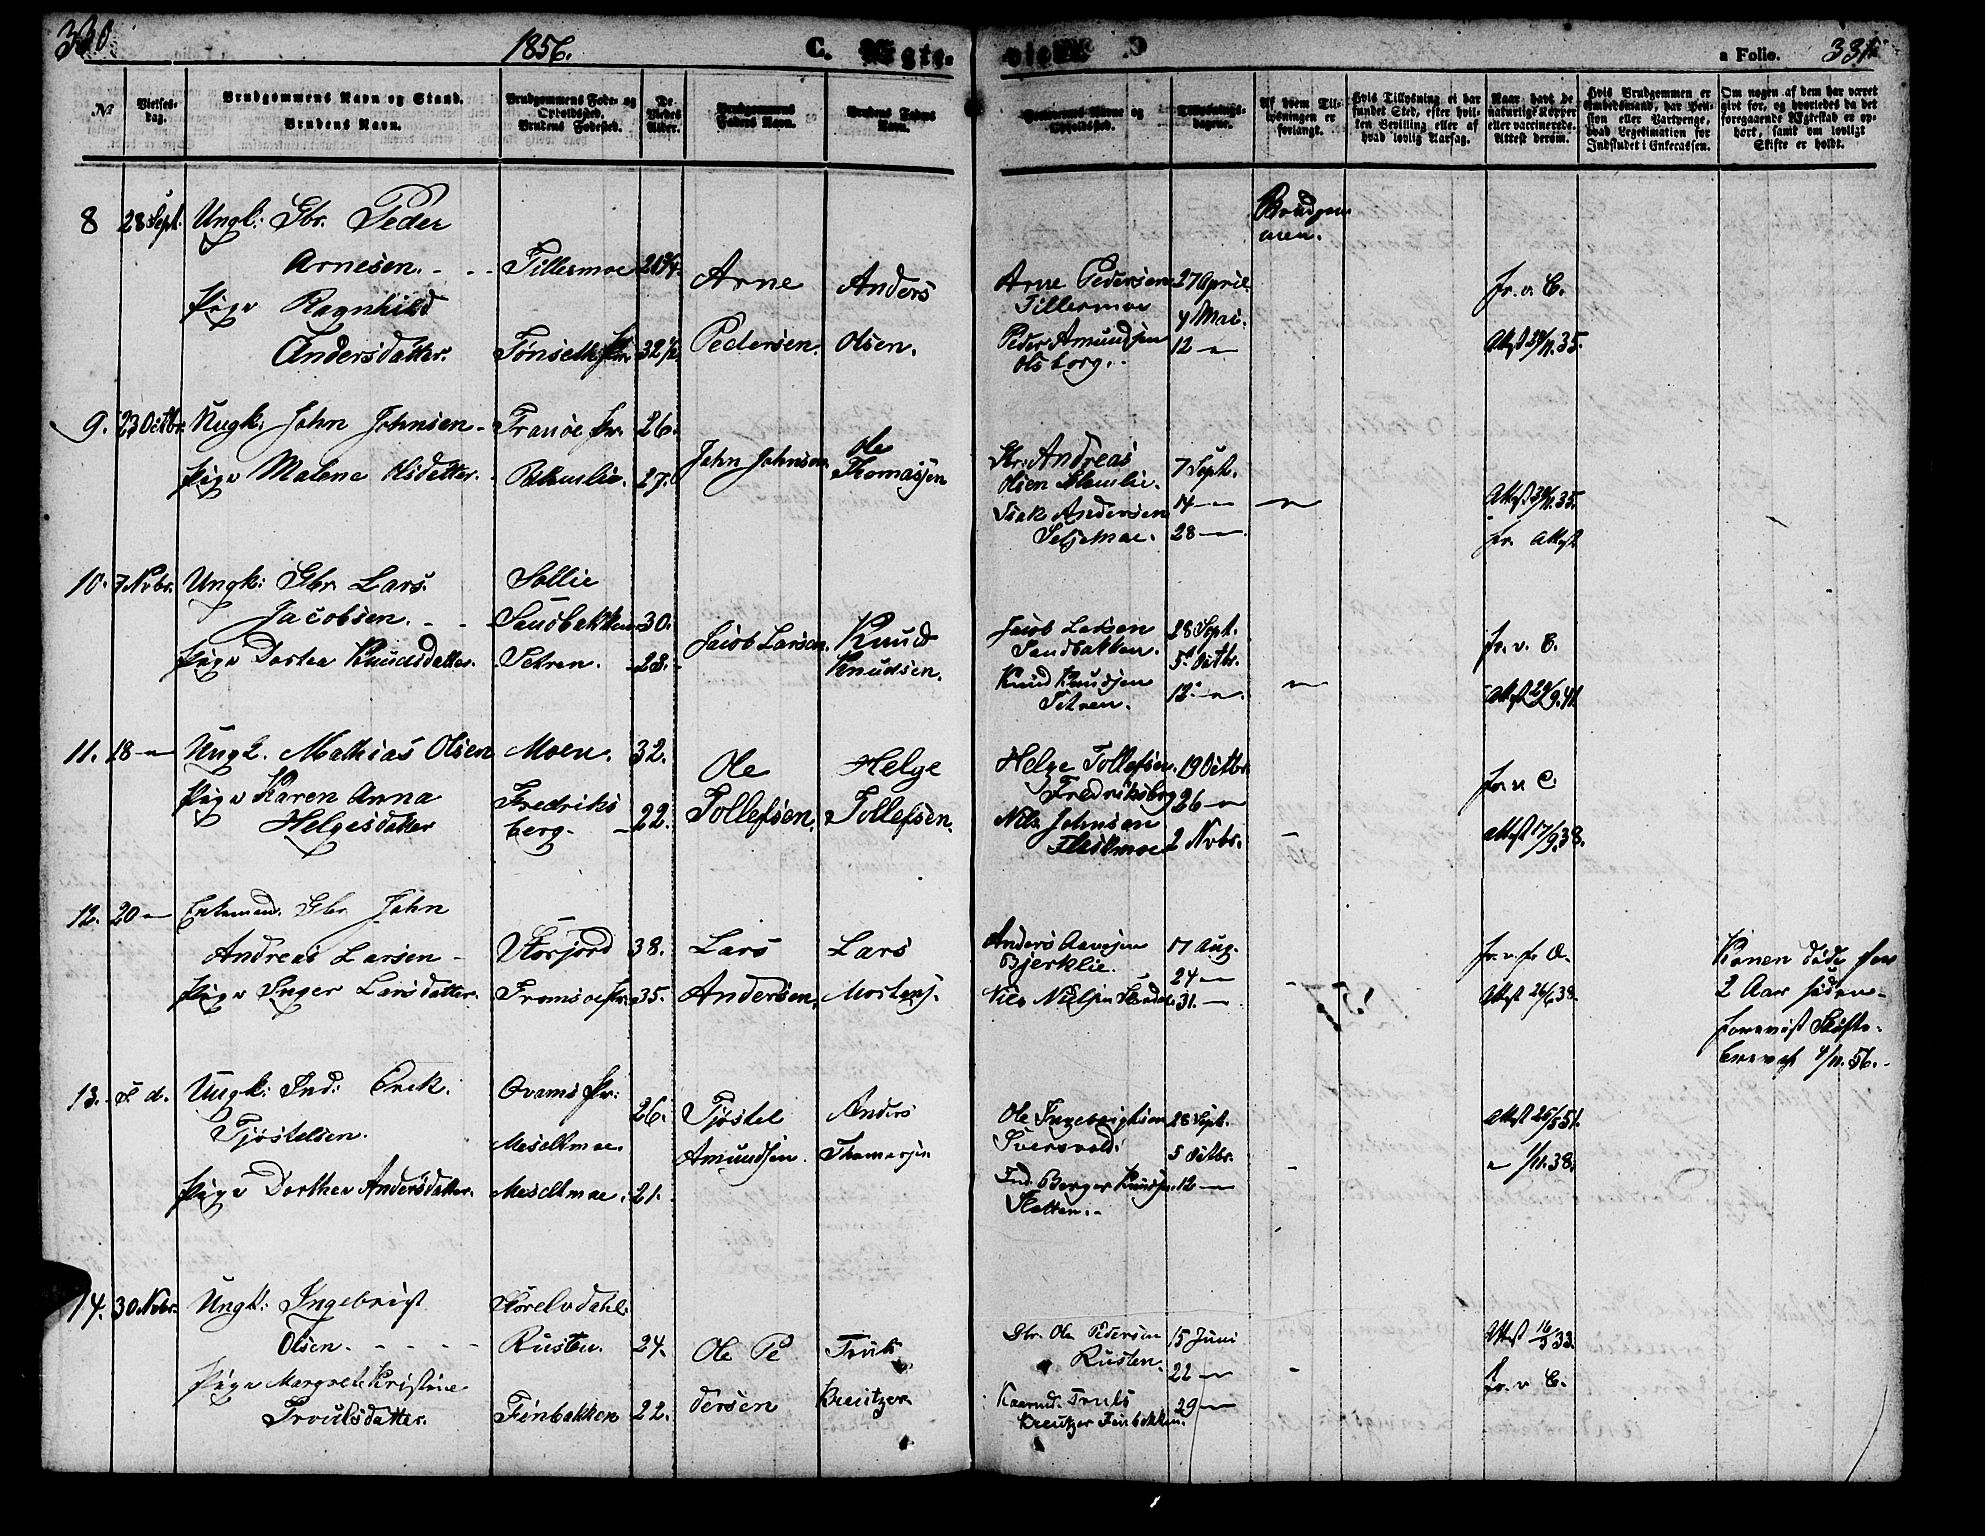 330
1856.
C. Ægte-
viede.
a Folio. 331
№
Vielses-
dag.
Brudgommens Navn og Stand.
Brudens Navn.
Brudgommens Føde- og
Opholdssted.
Brudens Fødested.
De
Viedes
Alder.
Brudgommens
Faders Navn.
Brudens Faders
Navn.
Forlovernes Navne og
Opholdssted.
Tillysnings-
dagene.
Af hvem Til-
lysningen er
forlangt.
Hvis Tillysning ei har
fundet Sted, efter hvil-
ken Bevilling eller af
hvad lovlig Aarsag.
Naar havt de
naturlige Kopper
eller vaccinerede.
Attest derom.
Hvis Brudgommen er
Embedsmand, har Pen-
sion eller Vartpenge,
hvad Legitimation for
Indskudet i Enkecassen.
Om nogen af dem har været
gift før, og hvorledes da det
foregaaende Ægteskab er op-
hørt, samt om lovligt
Skifte er holdt.
8 28 Sept. Ungk: Gbr. Peder
Arnesen. - - Tillermoe
Arne Anders
Pige Ragnhild
Andersdatter. Tønseth
Pedersen. Olsen.
Arne Pedersen 27 April.
Tillermoe
4 Mai.
Peder Amundsen 12 –
Olsborg.
Brudgom
men.
fr. v. C.
Attest 35.
9. 23 Octbr. Ungk. John Johnsen - Tranøe Pr. 26.
Pige Malene Olsdatter. 27.
John Johnsen. Ole
Thomassen
Gbr. Andreas
Olsen 7 Sept.
Isak Andersen 14 –
28 –
Attest 35.
fr. Attest
10. 7 Nvbr. Ungk: Gbr. Lars Sollie
Jacobsen. - - Sandbakken 30.
Pige Dortea Knudsdatter. Setren. - 28. -
Jacob Larsen. Knud
Knudsen.
Jacob Larsen 28 Sept.
Sandbakken. 5 Octbr.
Knud Knudsen 12 –
Setren.
fr. v. C.
Attest 29/9. 41.
11. 18 – Ungk. Mathias Olsen Moen. 32.
Pige Karen Anna Fredriks
Helgesdatter berg. - 22.
Ole Helge
Tollefsen. Tollefsen.
Helge Tollefsen. 19 Octbr.
Fredriksberg 26 –
Nils Johnsen 2 Nvbr.
fr. v. C
Attest 17/9. 38.
12. 20 – Enkemand. Gbr. John
Andreas Larsen - Storjord 38.
Pige Inger Larsdatter. Tromsøe Pr. 35.
Lars Lars
Andersen, Mortens.
Anders 17 Aug.
Bjerklie. 24 –
Nils Nielsen 31. –
fr. v. fr. A.
Attest 26/6 38.
Konen døde for
2 Aar siden -
forevist Skifte-
brevet 4/11. 56. -
13. s. d. Ungk: Ind: Erik Qvams Pr:
Tjøstelsen. 26.
Pige Dorthea Andersdatter. 21.
Tjøstel Anders
Amundsen. Thomassen
Ole Ingebrigtsen 28 Sept.
Iversvold. 5 Octbr.
Ind. Berger Knudsen. 12 –
Sletten. -
Attest 51.
– 1/11. 38.
14. 30 Nvbr. Ungk: Ingebrigt Storelvdahl
Olsen. - - - - Rusten. 24.
Pige Margrete Kristine
Troulsdatter. Finbakken 22.
Ole Pe
dersen
Truls
Kreutzer
Gbr. Ole Pedersen 15 Juni
Rusten. 22 –
Truls 29 –
Kreutzer Finbakken.
Attest 33.
fr. v. C.